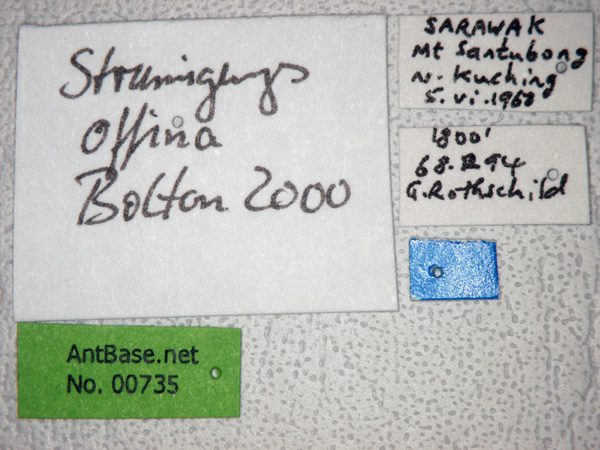 Strumigenys
Offina
Bolton 2000
SARAWAK
Mt Santubong
N. Kuching
5.vi.1968
1800'
68.R94
G.Rothschild
AntBase.net
No. 00735